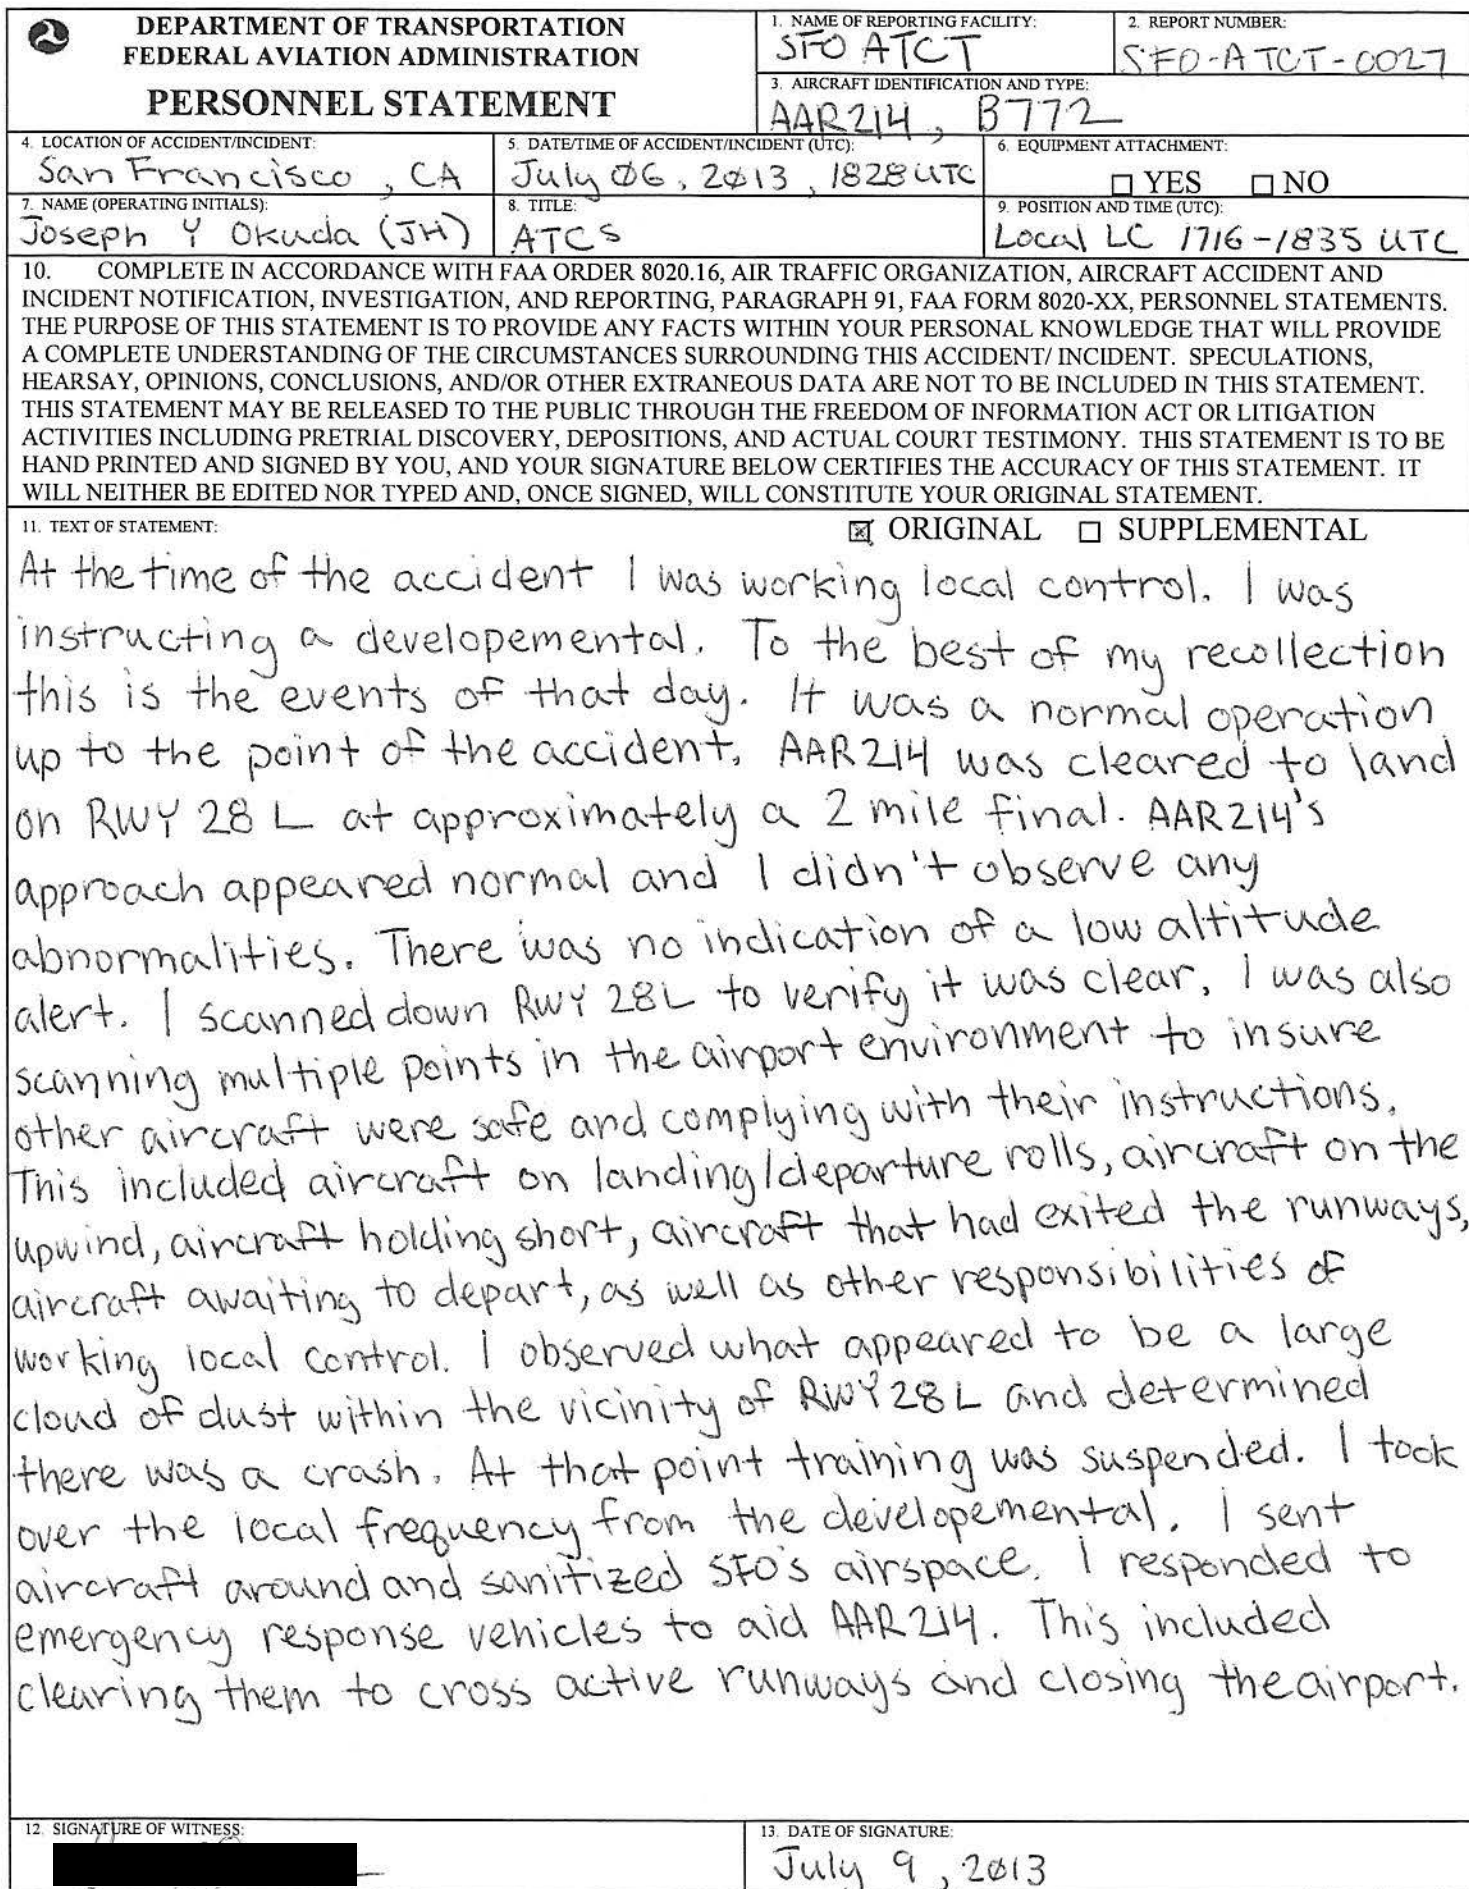 DEPARTMENT OF TRANSPORTATION
FEDERAL AVIATION ADMINISTRATION
PERSONNEL STATEMENT
1. NAME OF REPORTING FACILITY:
SFO ATCT
2. REPORT NUMBER:
SFO-ATCT-0027
3. AIRCRAFT IDENTIFICATION AND TYPE:
AAR214, B772
4. LOCATION OF ACCIDENT/INCIDENT:
San Francisco, CA
5. DATE/TIME OF ACCIDENT/INCIDENT (UTC):
July 06, 2013, 1828 UTC
6. EQUIPMENT ATTACHMENT:
☐ YES ☐ NO
7. NAME (OPERATING INITIALS):
Joseph Y Okuda (JH)
8. TITLE:
ATCS
9. POSITION AND TIME (UTC):
Local LC 1716-1835 UTC
10. COMPLETE IN ACCORDANCE WITH FAA ORDER 8020.16, AIR TRAFFIC ORGANIZATION, AIRCRAFT ACCIDENT AND
INCIDENT NOTIFICATION, INVESTIGATION, AND REPORTING, PARAGRAPH 91, FAA FORM 8020-XX, PERSONNEL STATEMENTS.
THE PURPOSE OF THIS STATEMENT IS TO PROVIDE ANY FACTS WITHIN YOUR PERSONAL KNOWLEDGE THAT WILL PROVIDE
A COMPLETE UNDERSTANDING OF THE CIRCUMSTANCES SURROUNDING THIS ACCIDENT/ INCIDENT. SPECULATIONS,
HEARSAY, OPINIONS, CONCLUSIONS, AND/OR OTHER EXTRANEOUS DATA ARE NOT TO BE INCLUDED IN THIS STATEMENT.
THIS STATEMENT MAY BE RELEASED TO THE PUBLIC THROUGH THE FREEDOM OF INFORMATION ACT OR LITIGATION
ACTIVITIES INCLUDING PRETRIAL DISCOVERY, DEPOSITIONS, AND ACTUAL COURT TESTIMONY. THIS STATEMENT IS TO BE
HAND PRINTED AND SIGNED BY YOU, AND YOUR SIGNATURE BELOW CERTIFIES THE ACCURACY OF THIS STATEMENT. IT
WILL NEITHER BE EDITED NOR TYPED AND, ONCE SIGNED, WILL CONSTITUTE YOUR ORIGINAL STATEMENT.
11. TEXT OF STATEMENT: ☒ ORIGINAL ☐ SUPPLEMENTAL
At the time of the accident I was working local control. I was
instructing a developemental. To the best of my recollection
this is the events of that day. It was a normal operation
up to the point of the accident. AAR214 was cleared to land
on RWY 28 L at approximately a 2 mile final. AAR214's
approach appeared normal and I didn't observe any
abnormalities. There was no indication of a low altitude
alert. I scanned down RWY 28L to verify it was clear. I was also
scanning multiple points in the airport environment to insure
other aircraft were safe and complying with their instructions.
This included aircraft on landing/departure rolls, aircraft on the
upwind, aircraft holding short, aircraft that had exited the runways,
aircraft awaiting to depart, as well as other responsibilities of
working local control. I observed what appeared to be a large
cloud of dust within the vicinity of RWY 28L and determined
there was a crash. At that point training was suspended. I took
over the local frequency from the developemental. I sent
aircraft around and sanitized SFO's airspace. I responded to
emergency response vehicles to aid AAR214. This included
clearing them to cross active runways and closing the airport.
12. SIGNATURE OF WITNESS:
13. DATE OF SIGNATURE:
July 9, 2013